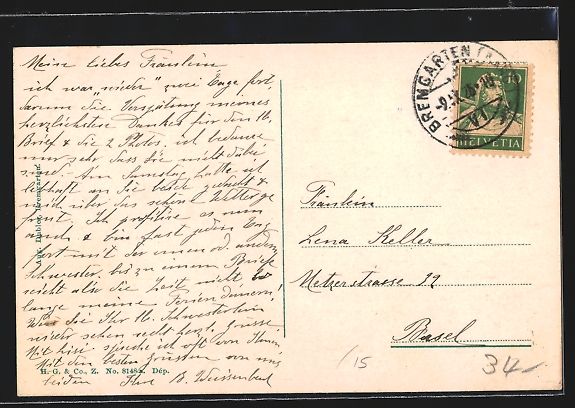 Mein liebes Fräulein
ich war "wieder" zwei Tage fort,
darum die Verspätung meines
herzlichsten Dankes für den lb.
Brief & die 2 Photos, ich bedaure
nur sehr dass Sie nicht dabei
sind. Am Samstag hatte ich
lebhaft an Sie gedacht &
mich über das schöne Wetter ge-
freut. Ich profitiere es nun
auch & bin fast jeden Tag
fort mit der einen od. andern
Schwester, bis zu einem Briefe
reicht also die Zeit nicht so
lange meine Ferien dauern!
Ihr lb. Schwesterlein
wieder sehen recht herzl. Grüsse.
Mit ich oft von Ihnen.
Mit den besten Grüssen von uns
beiden Ihre B.
Aug. Dubler, Bremgarten.
H. G. & Co., Z. No. 8148a. Dép.
BREMGARTEN
10
HELVETIA
Fräulein
Lena Keller
Metzerstrasse 92
Basel
/15
34-